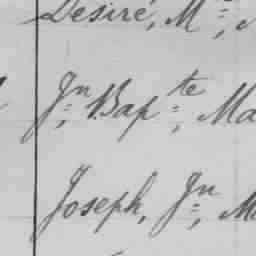 Désiré, M
Jn, Bapte, Ma
Joseph, Jn, M